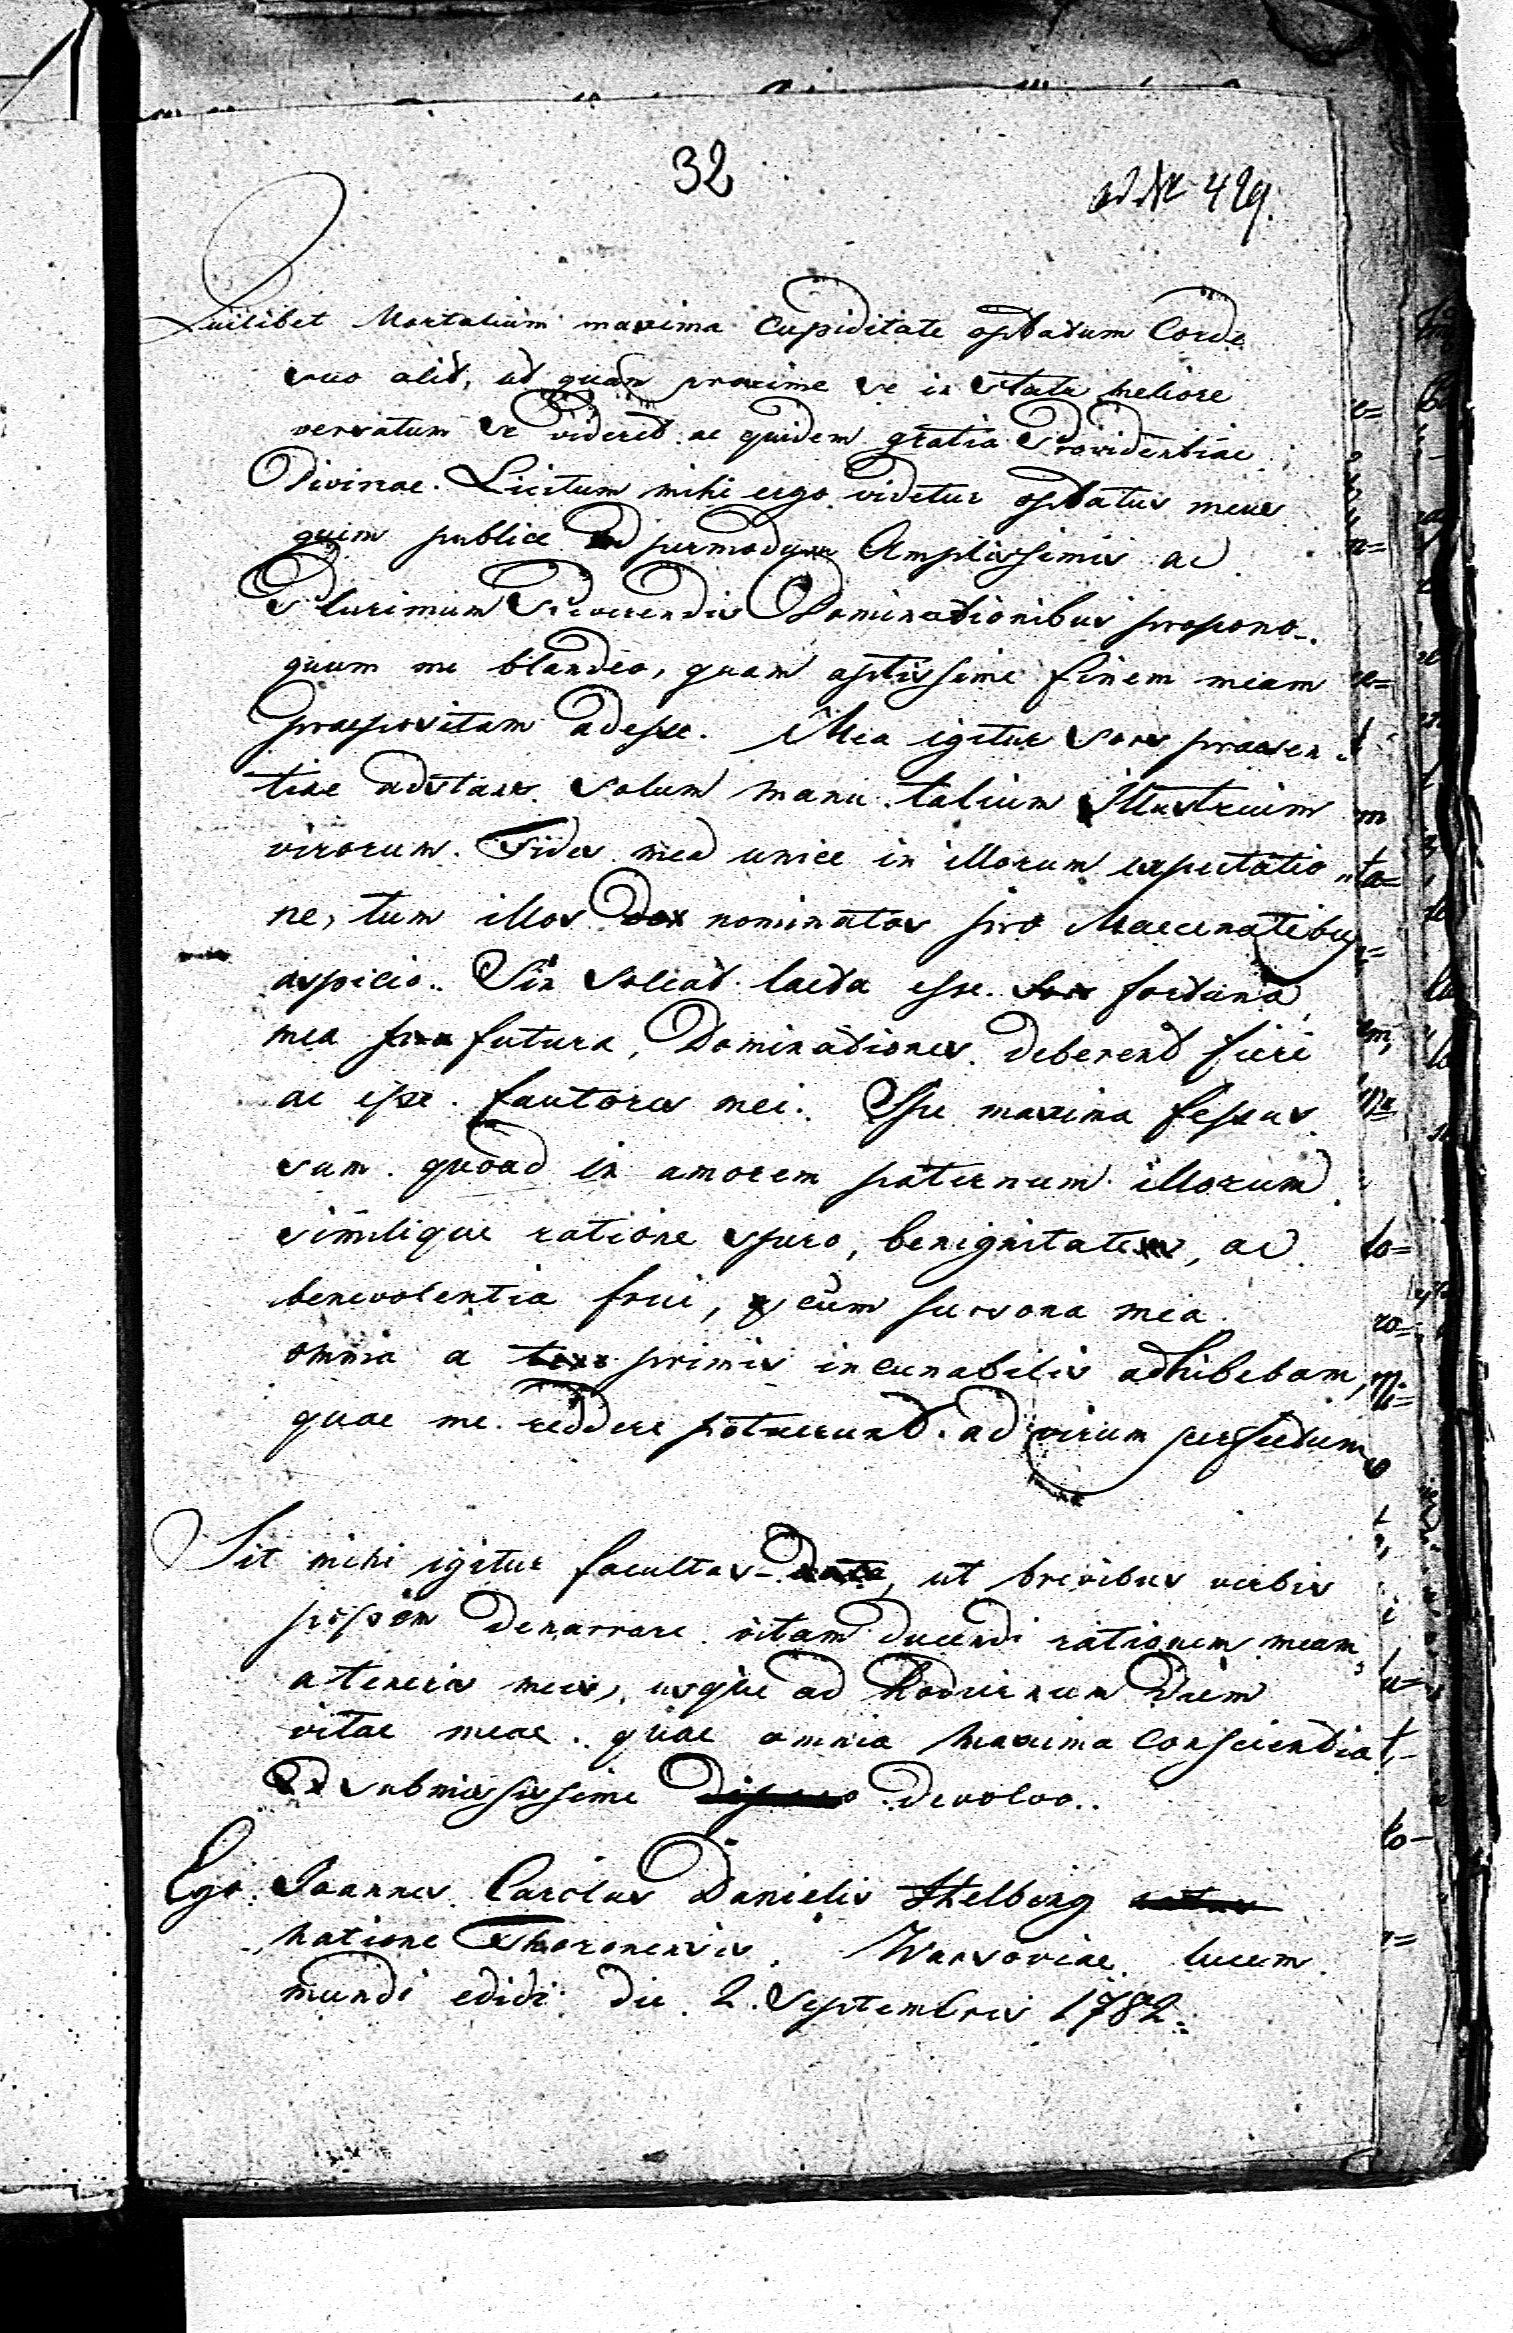 32
ad Nr 429.
Quilibet Mortalium maxima Cupiditate optatum Corde
suo alit, ut quam proxime se in statu meliore
versatum se videret. ac quidem gratia Providentiae
Divinae. Licitum mihi ergo videtur optatus meus
quim publice permodum Amplissimis ac
Plurimum Reverendis Dominationibus propono.
quum me blandeo, quam aptissime finem meam
praepositam adesse. Mea igitur sors praesen
tiae adstans solum manu talium Illustrium
virorum. Fides mea unice in illorum expectatio
ne, tum illos nominatos pro Maecenatibus
aspicio. Sin soleat laeta esse fortuna
mea futura, Dominationes deberent fieri
ac esse fautores mei. Spe maxima fessus
sum. quoad in amorem paternum illorum
similique ratione spero, benignitate, ac
benevolentia frui, cum persona mea
omnia a primis incunabilis adhibebam,
quae me reddere potuerunt ad virum perfectum
Sit mihi igitur facultas, ut brevibus verbis
possem denarrare vitam ducendi rationem meam,
a teneris meis, usque ad hodiernum diem
vitae meae. quae omnia maxima conscientia
submississime devolvo.
Ego Joannes Carolus Danielis Thelberg
natione Thoronensis. Warsoviae lucem
mundi edidi die 2. Septembris 1782.